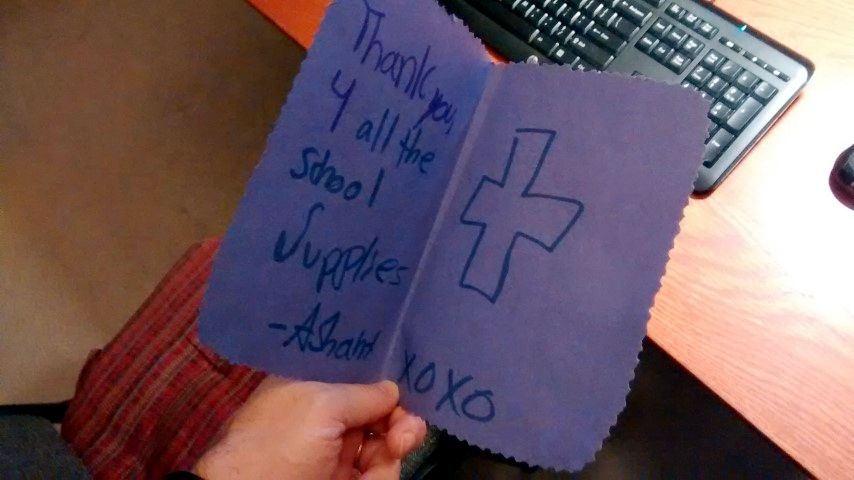 Thank you,
4 all the
School
Supplies
-AShant
XOXO